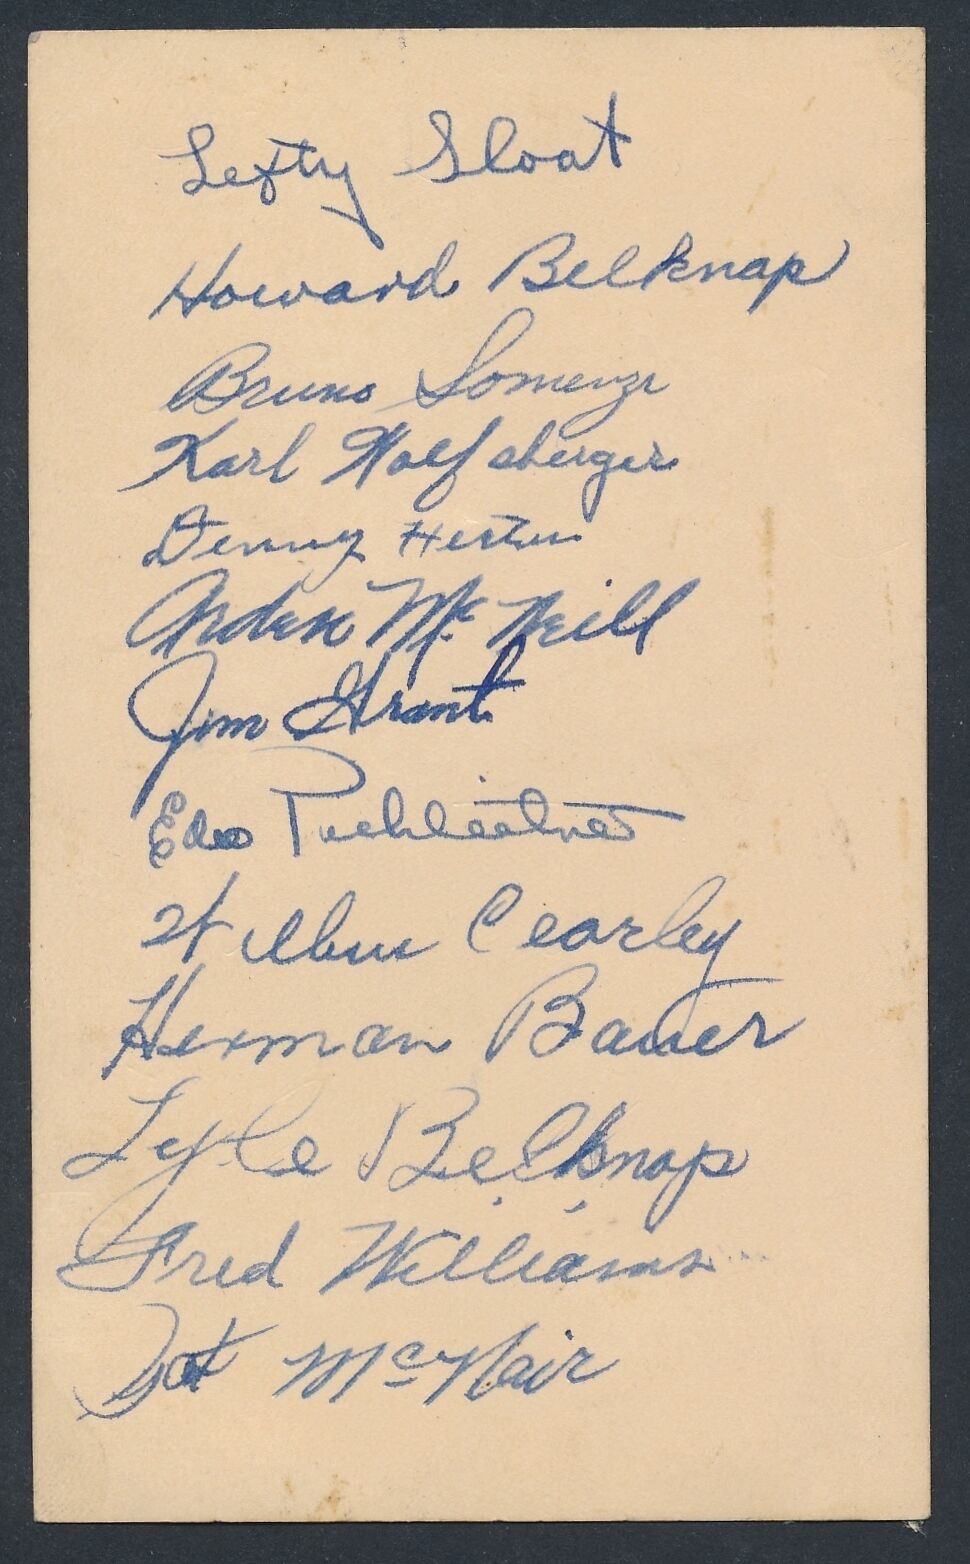 Lefty Sloat
Howard Belknap
Bruno Somenzi
Karl Wolfsberger
Denny
Arden McNeill
Jim Grant
Ed
Wilbur Cearley
Herman Bauer
Lyle Belknap
Fred Williams
McNair